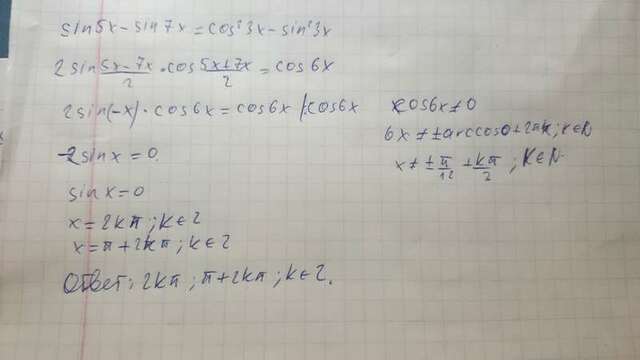 sin5x - sin7x = cos²3x - sin²3x
2sin (5x-7x)/2 · cos (5x+7x)/2 = cos6x
2sin(-x) · cos6x = cos6x /:cos6x
-2sinx = 0
sinx = 0
x = 2kπ ; k∈Z
x = π + 2kπ ; k∈Z
Ответ: 2kπ ; π + 2kπ ; k∈Z.
cos6x ≠ 0
6x ≠ ±arccos0 + 2πk ; k∈N
x ≠ ± π/12 + kπ/2 ; k∈N